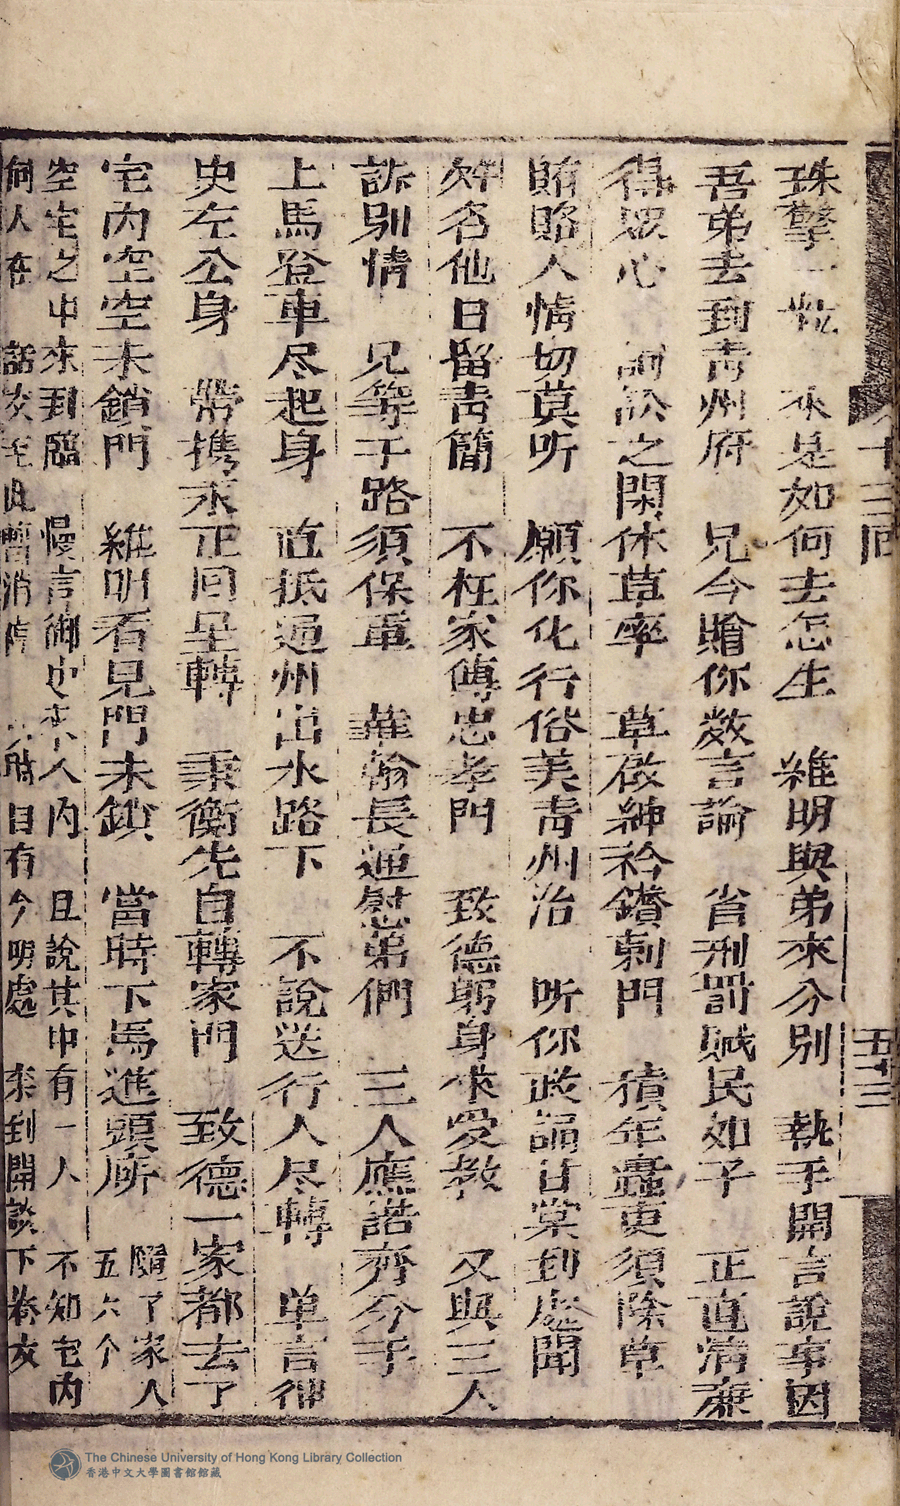 十三回
五十三
珠擎一粒 不是如何去怎生 維明與弟來分別 執手開言說事因
吾弟去到青州府 兄今贈你数言論 省刑罰賊民如子 正直清廉
得眾心 詞訟之閑休草率 草啟紳衿鑽剌門 積年蠹吏須除草
賄賂人情切莫听 願你化行俗美青州治 听你政謳甘棠到處聞
好名他日留青簡 不枉家傳忠孝門 致德躬身來受教 又與三人
訴別情 兄等千路須保重 華翰長通慰弟們 三人應諾齊分手
上馬登車尽起身 直抵通州出水路下 不說送行人尽轉 单言御
史左公身 帶携永正回呈轉 秉衡先自轉家門 致德一家都去了
宅內空空未鎖門 維明看見門未鎖 當時下馬進頭所 隨了家人五六个
空宅之中來到臨 慢言御史來入內 且說其中有一人 不知宅內
何人在 話收至此暫消停 日有今明處 來到開談下卷友
The Chinese University of Hong Kong Library Collection
香港中文大學圖書館館藏